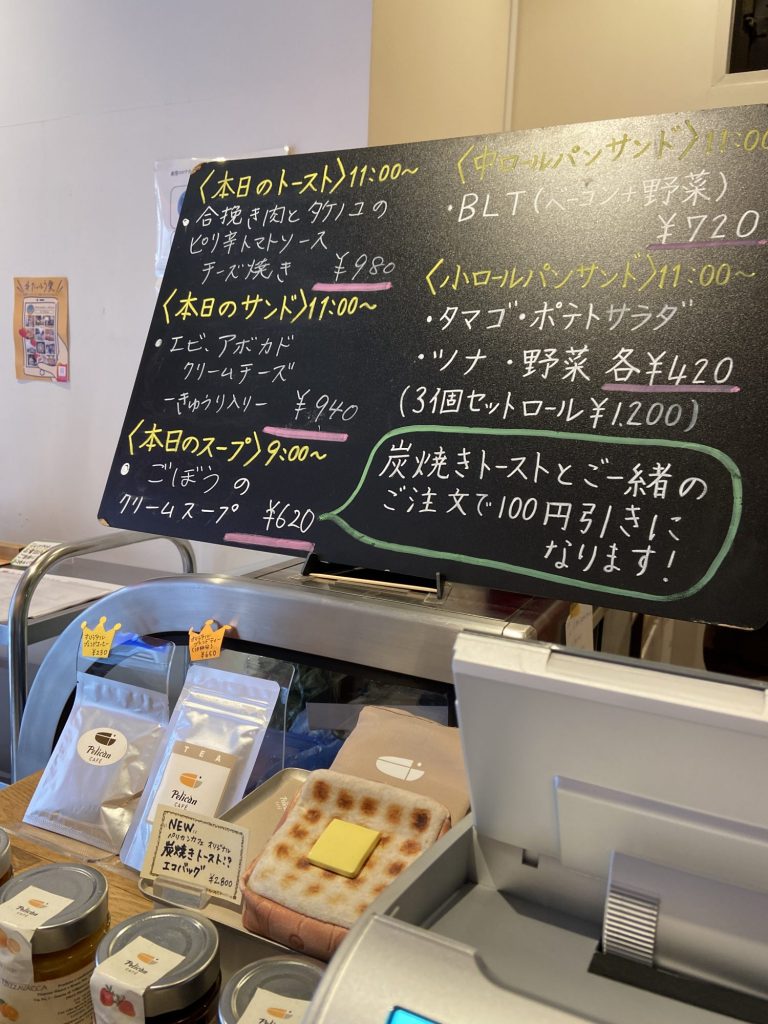 〈本日のトースト〉11:00～
・合挽き肉とタケノコの
ピリ辛トマトソース
チーズ焼き ¥980
〈本日のサンド〉11:00～
・エビ、アボカド
クリームチーズ
ーきゅうり入りー ¥940
〈本日のスープ〉9:00～
・ごぼうの
クリームスープ ¥620
〈中ロールパンサンド〉11:00
・BLT(ベーコンナ野菜)
¥720
〈小ロールパンサンド〉11:00～
・タマゴ・ポテトサラダ
・ツナ・野菜 各¥420
(3個セットロール¥1.200)
炭焼きトーストとご一緒の
ご注文で100円引きに
なります!
オリジナル
ブレンドコーヒー
¥230
オリジナル
¥650
Pelican
CAFÉ
TEA
Pelican
CAFÉ
NEW!
ペリカンカフェ オリジナル
炭焼きトースト!?
エコバッグ
¥2,800
Pelican
CAFÉ
Pelican
CAFÉ
Pelican
CAFÉ